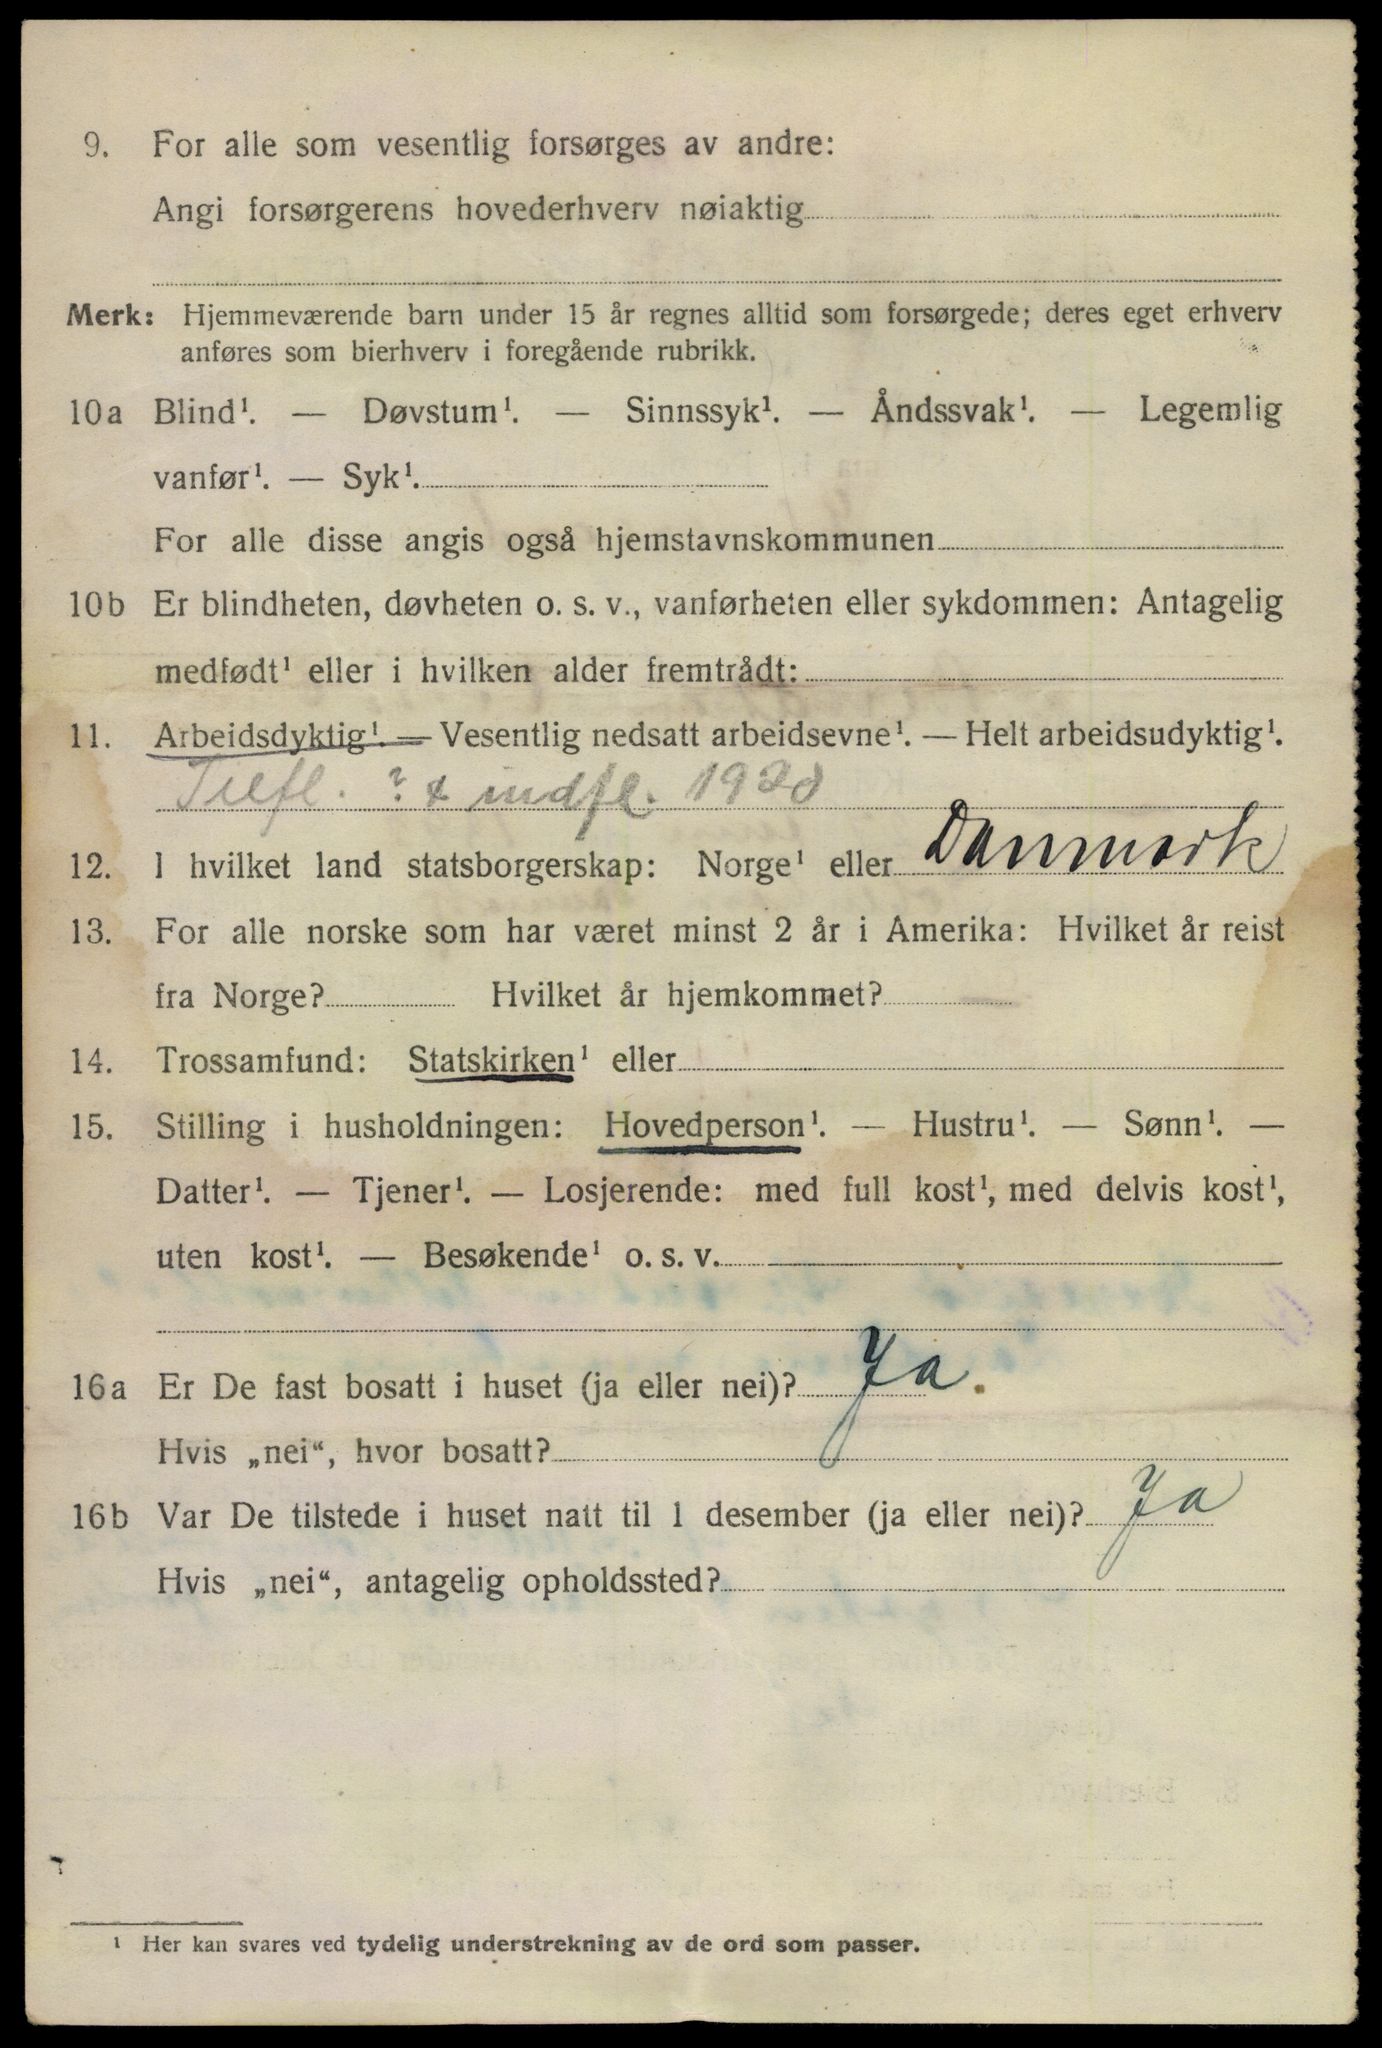 9. For alle som vesentlig forsørges av andre:
Angi forsørgerens hovederhverv nøiaktig
Merk: Hjemmeværende barn under 15 år regnes alltid som forsørgede; deres eget erhverv
anføres som bierhverv i foregående rubrikk.
10a Blind¹. — Døvstum¹. — Sinnssyk¹. — Åndssvak¹. — Legemlig
vanfør¹. — Syk¹.
For alle disse angis også hjemstavnskommunen
10b Er blindheten, døvheten o. s. v., vanførheten eller sykdommen: Antagelig
medfødt¹ eller i hvilken alder fremtrådt:
11. Arbeidsdyktig¹. — Vesentlig nedsatt arbeidsevne¹. — Helt arbeidsudyktig¹.
? & indfl. 1920
12. I hvilket land statsborgerskap: Norge¹ eller Danmark
13. For alle norske som har været minst 2 år i Amerika: Hvilket år reist
fra Norge? Hvilket år hjemkommet?
14. Trossamfund: Statskirken¹ eller
15. Stilling i husholdningen: Hovedperson¹. — Hustru¹. — Sønn¹. —
Datter¹. — Tjener¹. — Losjerende: med full kost¹, med delvis kost¹,
uten kost¹. — Besøkende¹ o. s. v.
16a Er De fast bosatt i huset (ja eller nei)? Ja.
Hvis „nei“, hvor bosatt?
16b Var De tilstede i huset natt til 1 desember (ja eller nei)? Ja
Hvis „nei“, antagelig opholdssted?
¹ Her kan svares ved tydelig understrekning av de ord som passer.